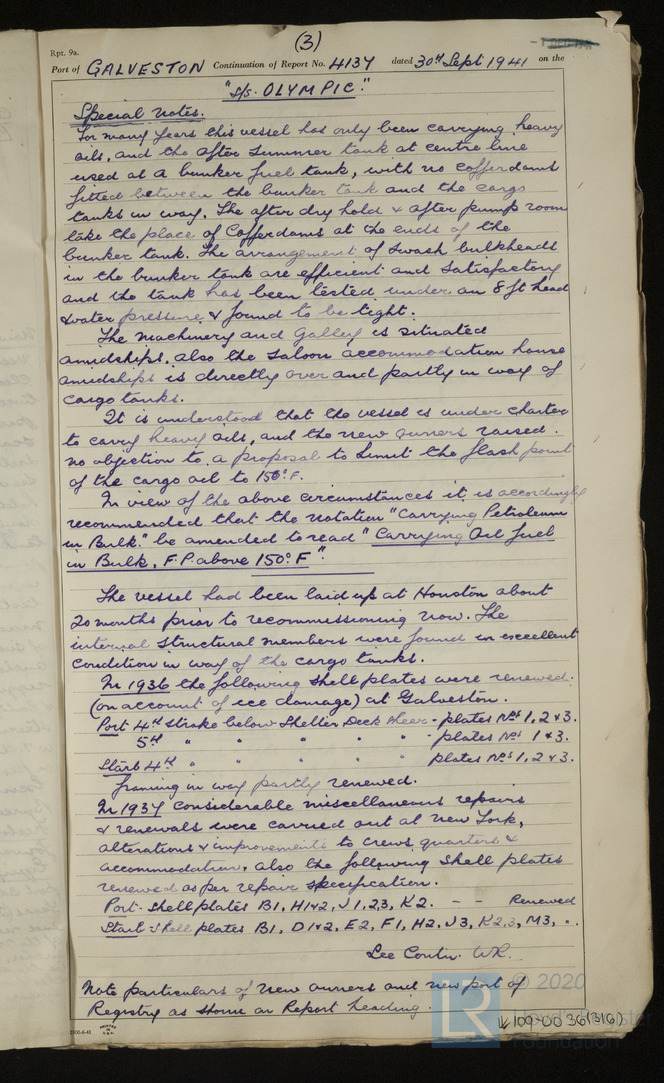 (3)
Rpt. 9a.
Port of GALVESTON Continuation of Report No. 4137 dated 30th Sept 1941 on the
"S/S. OLYMPIC."
Special Notes.
For many years this vessel has only been carrying heavy
oils, and the after summer tank at centre line
used as a bunker fuel tank, with no cofferdams
fitted between the bunker tank and the cargo
tanks in way. The after dry hold & after pump room
take the place of Cofferdams at the ends of the
bunker tank. The arrangement of swash bulkheads
in the bunker tank are efficient and satisfactory
and the tank has been tested under an 8 ft head
water pressure & found to be tight.
The machinery and Galley is situated
amidships, also the saloon accommodation house
amidships is directly over and partly in way of
cargo tanks.
It is understood that the vessel is under charter
to carry heavy oils, and the new owners raised
no objection to a proposal to limit the flash point
of the cargo oil to 150° F.
In view of the above circumstances it is accordingly
recommended that the notation "Carrying Petroleum
in Bulk" be amended to read "Carrying Oil fuel
in Bulk, F.P. above 150° F".
The vessel had been laid up at Houston about
20 months prior to recommissioning now. The
internal structural members were found in excellent
condition in way of the cargo tanks.
In 1936 the following shell plates were renewed.
(on account of ice damage) at Galveston.
Port 4th strake below Shelter Deck sheer - plates Nos 1, 2 & 3.
5th " " " " " - plates Nos 1 & 3.
Starb 4th " " " " " plates Nos 1, 2 & 3.
framing in way partly renewed.
In 1937 considerable miscellaneous repairs
& renewals were carried out at New York,
alterations & improvements to crews quarters &
accommodation, also the following shell plates
renewed as per repair specification.
Port - shell plates B1, H1&2, J1,2,3, K2. - - Renewed
Starb - shell plates B1, D1&2, E2, F1, H2, J3, K2,3, M3, "
See Contin. WR.
Note particulars of new owners and new port of
Registry as shown on Report heading.
© 2020
LR
Foundation
W109-0036(316)